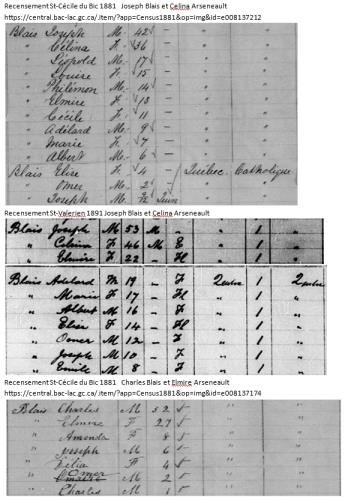 Recensement St-Cécile du Bic 1881 Joseph Blais et Celina Arseneault
https://central.bac-lac.gc.ca/.item/?app=Census1881&op=img&id=e008137212
Blais Joseph M - 42
" Célina F - 36 - " "
" Léopold M - 17 - " "
" Louise F - 15 - " "
" Philémon M - 14 - " "
" Elmire F - 13 - " "
" Cécile F - 11 - " "
" Adélard M - 9 - " "
" Marie F - 7 - " "
" Albert M - 6 - " "
Blais Elise F - 4 - Québec Catholique
" Omer M - 2 " "
" Joseph M Juin " "
Recensement St-Valerien 1891 Joseph Blais et Celina Arseneault
Blais Joseph M 53 M 1
" Celina F 46 M E " 1 "
" Elmire F 22 - " 1 "
Blais Adelard M 19 - 1
" Marie F 17 - " 1 "
" Albert M 16 - " 1 "
" Elise F 14 - " 1 "
" Omer M 12 - " 1 "
" Joseph M 10 - " 1 "
" Emile M 8 - " 1 "
Recensement St-Cécile du Bic 1881 Charles Blais et Elmire Arseneault
https://central.bac-lac.gc.ca/.item/?app=Census1881&op=img&id=e008137174
Blais Charles M 32 " "
" Elmire F 27 " "
" Amanda F 8 " "
" Joseph M 6 " "
" F 4 " "
" Omer M 2 " "
" Charles M 1 " "